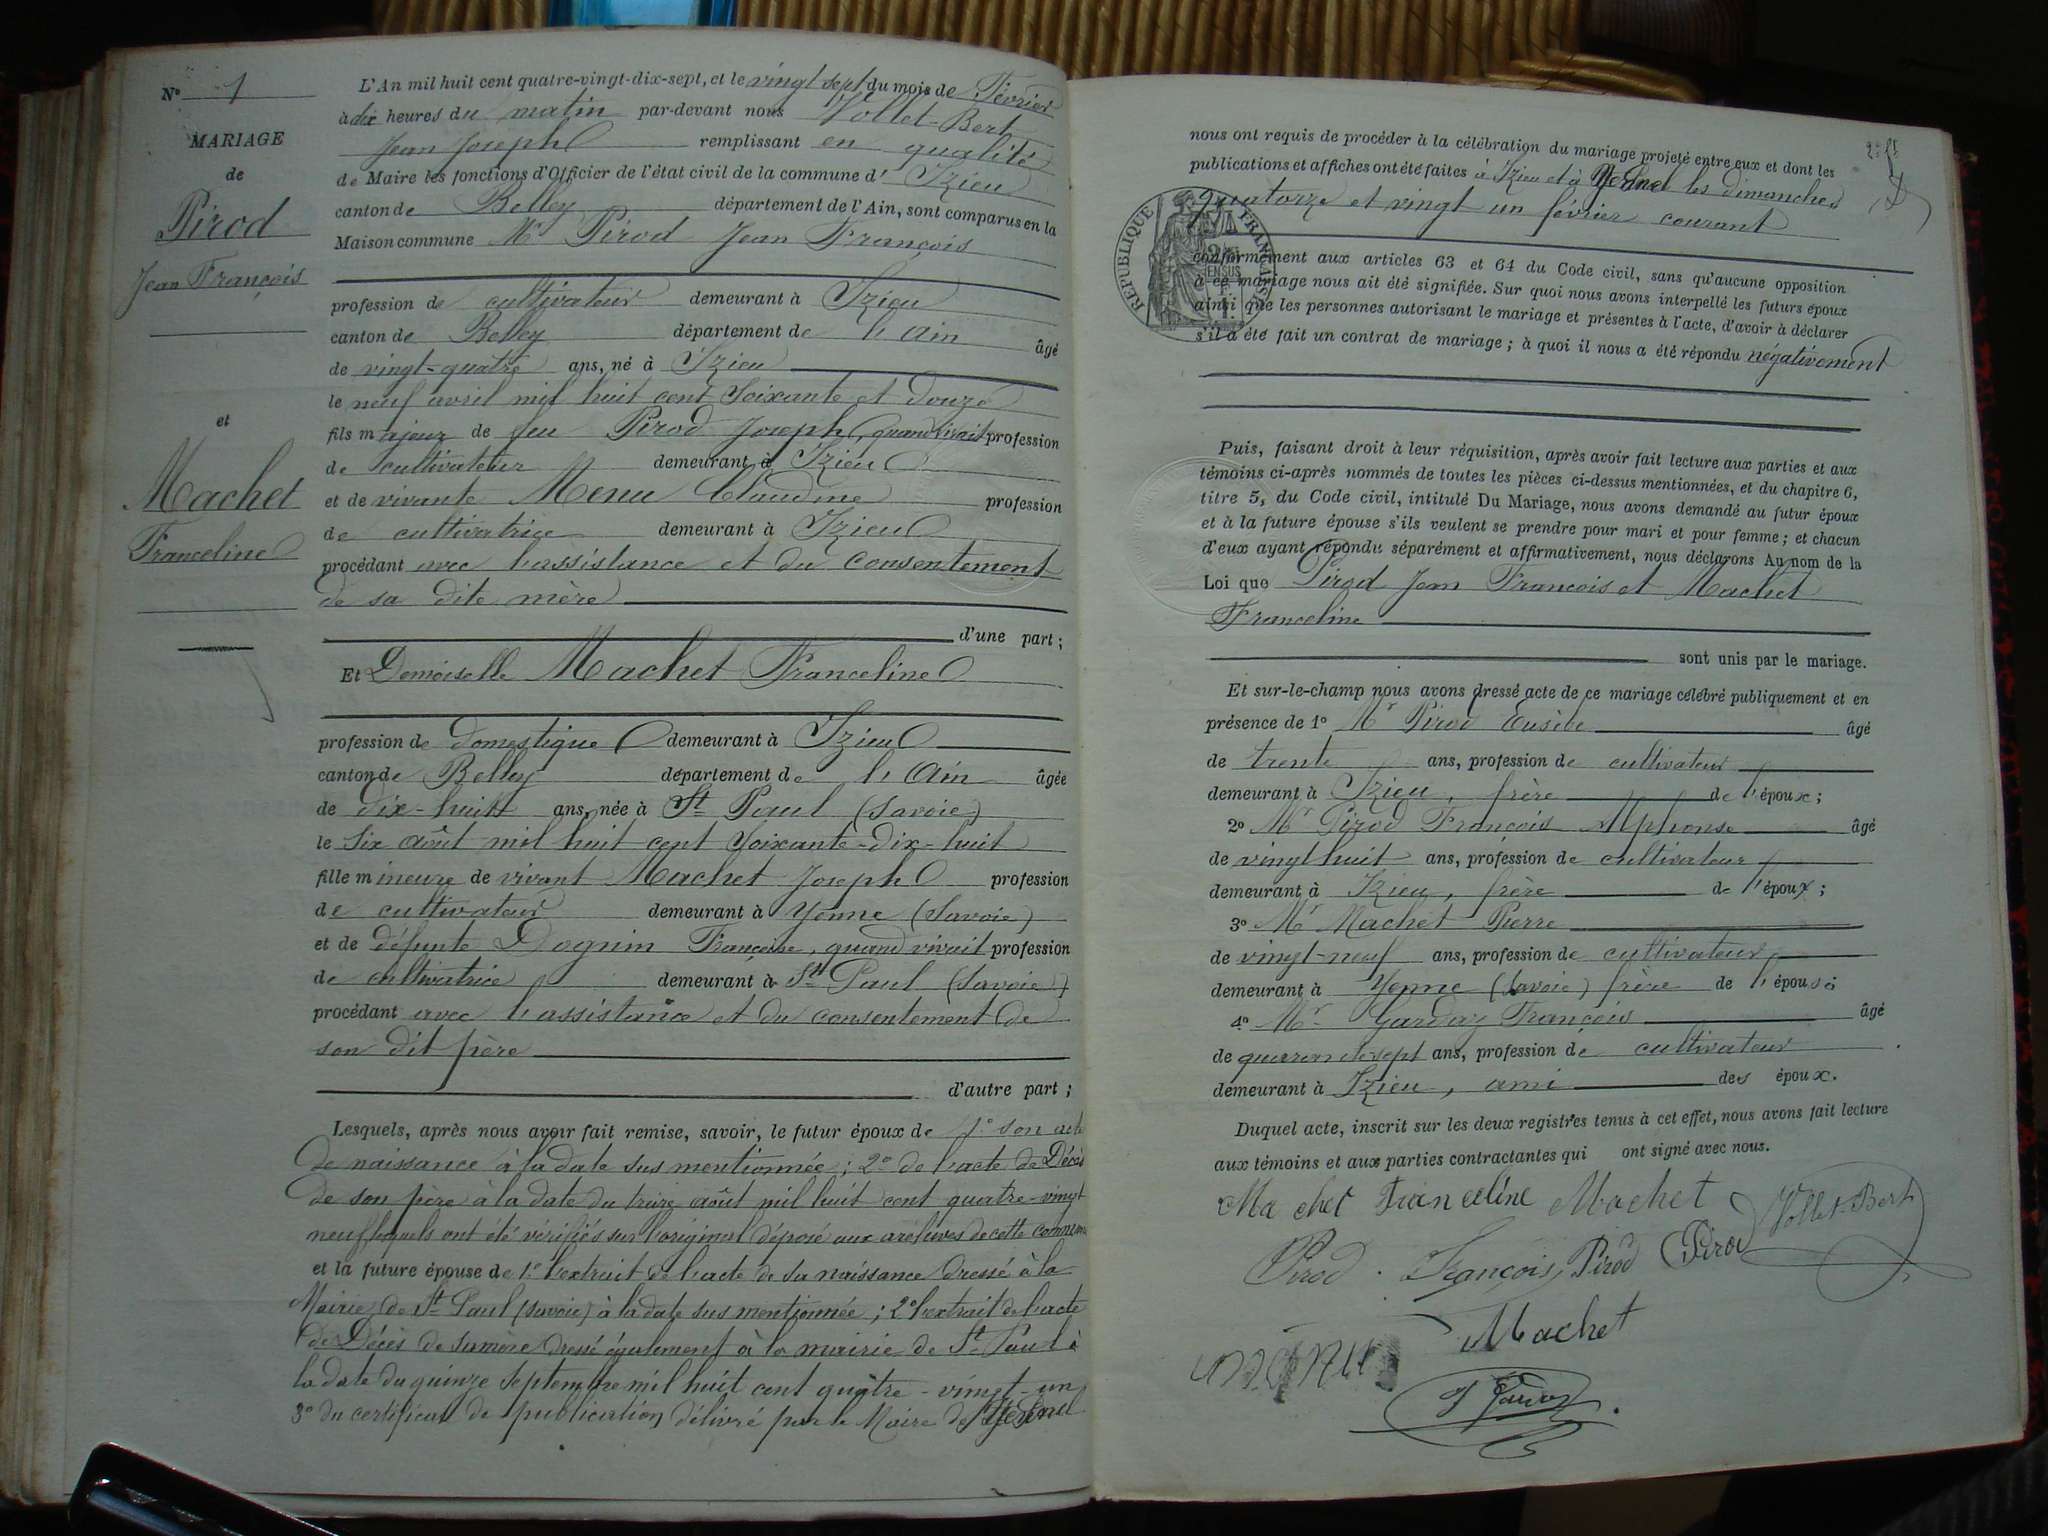 N° 1
MARIAGE
de
Pirod
Jean François
et
Machet
Franceline
L'An mil huit cent quatre-vingt-dix-sept, et le vingt sept du mois de Février
à dix heures du matin par-devant nous Vollet-Bert
Jean Joseph remplissant en qualité
de Maire les fonctions d'Officier de l'état civil de la commune d' Izieu
canton de Belley département de l'Ain, sont comparus en la
Maison commune Mr Pirod Jean François
profession de cultivateur demeurant à Izieu
canton de Belley département de l'Ain âgé
de vingt-quatre ans, né à Izieu
le neuf avril mil huit cent soixante et douze
fils majeur de feu Pirod Joseph, quand vivait profession
de cultivateur demeurant à Izieu
et de vivante Menu Claudine profession
de cultivatrice demeurant à Izieu
procédant avec l'assistance et du consentement
de sa dite mère
d'une part ;
Et Demoiselle Machet Franceline
profession de domestique demeurant à Izieu
canton de Belley département de l'Ain âgée
de dix-huit ans, née à St Paul (Savoie)
le six août mil huit cent soixante-dix-huit
fille mineure de vivant Machet Joseph profession
de cultivateur demeurant à Yenne (Savoie)
et de défunte Dognin Françoise, quand vivait profession
de cultivatrice demeurant à St Paul (Savoie)
procédant avec l'assistance et du consentement de
son dit père
d'autre part ;
Lesquels, après nous avoir fait remise, savoir, le futur époux de 1° son acte
de naissance à la date sus mentionnée ; 2° de l'acte de Décès
de son père à la date du treize août mil huit cent quatre-vingt
neuf lesquels ont été vérifiés sur l'original déposé aux archives de cette commune
et la future épouse de 1° l'extrait de l'acte de sa naissance dressé à la
Mairie de St Paul (Savoie) à la date sus mentionnée ; 2° l'extrait de l'acte
de Décès de sa mère dressé également à la mairie de St Paul à
la date du quinze septembre mil huit cent quatre-vingt-un
3° du certificat de publication délivré par le Maire de
nous ont requis de procéder à la célébration du mariage projeté entre eux et dont les
publications et affiches ont été faites à Izieu et à les dimanches
quatorze et vingt un février courant
RÉPUBLIQUE FRANÇAISE
conformément aux articles 63 et 64 du Code civil, sans qu'aucune opposition
à ce mariage nous ait été signifiée. Sur quoi nous avons interpellé les futurs époux
ainsi que les personnes autorisant le mariage et présentes à l'acte, d'avoir à déclarer
s'il a été fait un contrat de mariage ; à quoi il nous a été répondu négativement
Puis, faisant droit à leur réquisition, après avoir fait lecture aux parties et aux
témoins ci-après nommés de toutes les pièces ci-dessus mentionnées, et du chapitre 6,
titre 5, du Code civil, intitulé Du Mariage, nous avons demandé au futur époux
et à la future épouse s'ils veulent se prendre pour mari et pour femme ; et chacun
d'eux ayant répondu séparément et affirmativement, nous déclarons Au nom de la
Loi que Pirod Jean François et Machet
Franceline
sont unis par le mariage.
Et sur-le-champ nous avons dressé acte de ce mariage célébré publiquement et en
présence de 1° Mr Pirod Eusèbe âgé
de trente ans, profession de cultivateur
demeurant à Izieu, frère de l'époux ;
2° Mr Pirod François Alphonse âgé
de vingt huit ans, profession de cultivateur
demeurant à Izieu, frère de l'époux ;
3° Mr Machet Pierre
de vingt-neuf ans, profession de cultivateur
demeurant à Yenne (Savoie) frère de l'épouse
4° Mr François âgé
de quarante sept ans, profession de cultivateur
demeurant à Izieu, ami des époux.
Duquel acte, inscrit sur les deux registres tenus à cet effet, nous avons fait lecture
aux témoins et aux parties contractantes qui ont signé avec nous.
Machet Franceline Machet Vollet-Bert
Pirod François Pirod Pirod
Machet